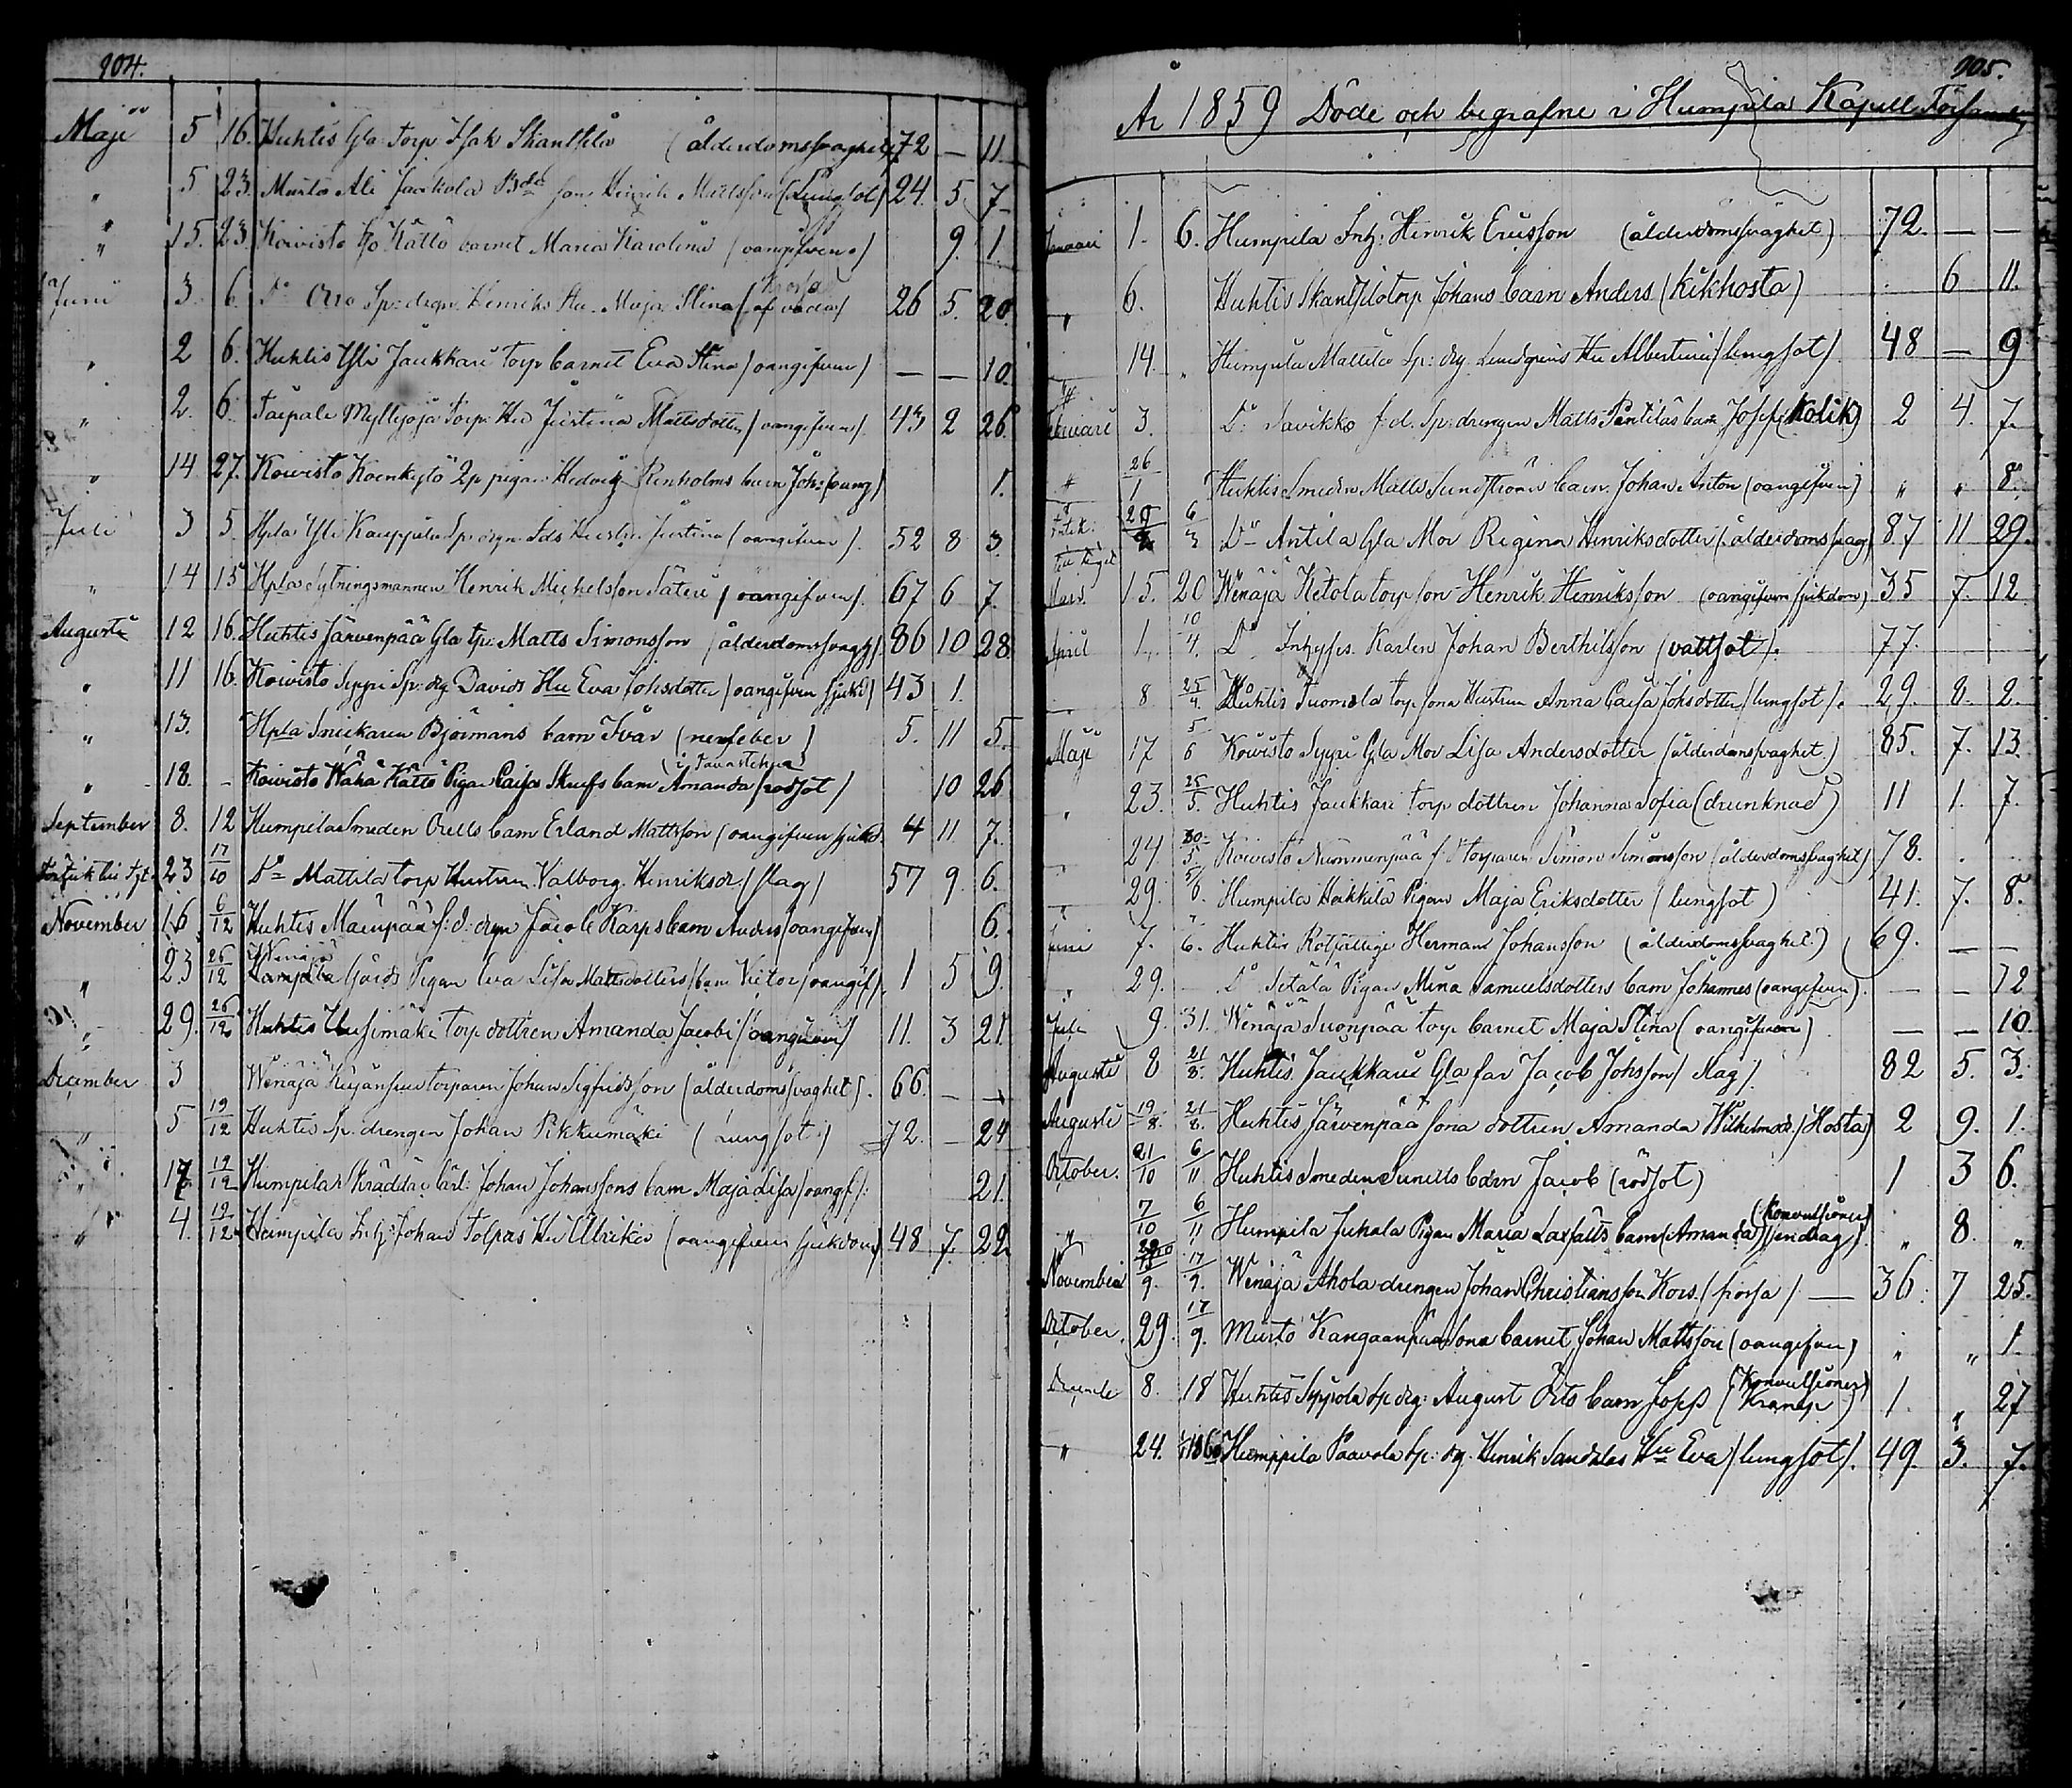 904.
Maji 5 16. Huhtis Gla Torp. Isak Skantsilä (ålderdomssvaghet) 72 — 11
" 5 23. Murto Ali Jaakola Bds son Henrik Mattsson (Lungsot) 24. 5 7
" 15. 23. Koivisto Kättö barnet Maria Karolina (oangifven) 9. 1.
Juni 3. 6. Do Orro Sp: drgn. Henriks Hu. Maja Stina (af) 26 5. 20.
" 2 6. Huhtis Yli Jaukkari torp barnet Eva Stina (oangifven) — — 10.
" 2. 6. Taipale Myllyoja Torp. Hu Justina Mattsdotter (oangifven) 43 2 26.
" 14 27. Koivisto Koenkytö pigan Hedvig Renholms barn Joh: (oang) 1.
Juli 3 5. Hpla Yli Kauppila Sp: drgn. Hustru Justina (oangifven). 52 8 3.
" 14 15 Hpla Sytningsmannen Henrik Michelsson Säteri (oangifven). 67 6 7.
Augusti 12 16. Huhtis Järvenpää Gla tp: Matts Simonsson (ålderdomssvagh) 86 10 28.
" 11 16. Koivisto Seppi Sp: drg Davids Hu Eva Johsdotter (oangifven sjukd) 43 1.
" 13. Hpla Snickaren Björmans barn Ivar (nerfeber) 5. 11 5.
(i Tavastehus)
" 18. - Koivisto Waha Kättö Pigan Caisa Skrufs barn Amanda (rödsot) 10 26
September 8. 12 Humpila Smeden Orells barn Erland Mattsson (oangifven sjukd. 4 11. 7.
23 17/10 Do Mattila torp Hustrun Valborg Henriksdr (slag) 57 9. 6.
November 16 6/12 Huhtis Maenpää f: d: drgn Jacob Karps barn Anders (oangifven) 6.
Wenäjä
" 23 26/12 Humpila Gårds Pigan Eva Lisa Mattsdotters barn Victor (oangif) 1 5 9.
" 29. 26/12 Huhtis Uusimäki torp dottren Amanda Jacobi (oangifven) 11. 3 21
December 3 Wenäjä torparen Johan Sigfridsson (ålderdomssvaghet). 66. — —
" 5 19/12 Huhtis Sp. drengen Johan Pikkumäki (Lungsot) 72. — 24
" 17 19/12 Humpila Skräddar lärl: Johan Johanssons barn Maja Lisa (oangf): 21.
" 4. 19/12 Humpila Inh: Johan Tolpas Hu Ulrika (oangifven sjukdom) 48 7. 22.
905.
År 1859 Döde och begrafne i Humpila Kapell Församl.
Januari 1. 6. Humpila Inh: Henrik Ericsson (ålderdomssvaghet) 72. — —
" 6. Huhtis Skantsilä torp Johans barn Anders (Kikhosta) 6 11.
14. " Humpila Mattila Sp: drg Lundgrens Hu Albertina (lungsot) 48 — 9
Februari 3. Do: Savikko f.d. Sp: drengen Matts Penttiläs barn Josef (Kolik) 2 4. 7.
" 26/1 Huhtis Smeden Matts Sundströms barn Johan Anton (oangifven) " " 8.
6/3 Do Antila Gla Mor Regina Henriksdotter (ålderdomssvag) 87 11 29.
Mars. 15. 20 Wenäjä Ketola torp son Henrik Henriksson (oangifven sjukdom) 35 7. 12
April 1. 10/4. Do Inhyses Karlen Johan Berthilsson (vattsot). 77.
— 8. 25/4. Huhtis Tuomola torp sona Hustrun Anna Caisa Johsdotter (lungsot). 29. 8. 2.
Maji 17 5/6 Koivisto Seppi Gla Mor Lisa Andersdotter (ålderdomssvaghet.) 85. 7. 13.
" 23. 25/5. Huhtis Jaukkari torp dottren Johanna Sofia (drunknad) 11 1. 7.
" 24 30/5. Koivisto Nummenpää f. d torparen Simon Simonsson (ålderdomssvaghet) 78.
" 29. 5/6. Humpila Heikkilä Pigan Maja Eriksdotter (lungsot) 41. 7. 8.
Juni 7. 6. Huhtis Rotfattige Herman Johansson (ålderdomssvaghet) 69. — —
" 29. — Do Sétälä Pigan Mina Samuelsdotters barn Johannes (oangifven). — — 12
Juli 9. 31. Wenäjä Suonpää torp barnet Maja Stina (oangifven) — — 10.
Augusti 8 21/8. Huhtis Jaukkari Gla far Jacob Johsson (slag). 82 5. 3.
Augusti 19/8. 21/8. Huhtis Järvenpää sona dottren Amanda Wilhelmsdr (Hosta) 2 9. 1.
October. 21/10 6/11 Huhtis Smeden Sunells barn Jacob (rödsot) 1 3 6.
(Konvulsioner)
" 7/10 6/11 Humpila Juhala Pigan Maria Laxfälts barn (Amanda) " 8. "
November 9. 17/9. Wenäjä Ahola drengen Johan Christiansson Kors (frossa) — 36. 7 25.
October. 29. 17/9. Murto Kangaanpää sona barnet Johan Mattsson (oangifven) " " 1.
(Konvulsioner)
8. 18 Huhtis Seppola Sp: drg: August Orts barn Josef (Kramp) 1. " 27
" 24. 1860 Humppila Paavola Sp: drg. Henrik Sandelas Hu Eva (lungsot). 49. 3. 7.